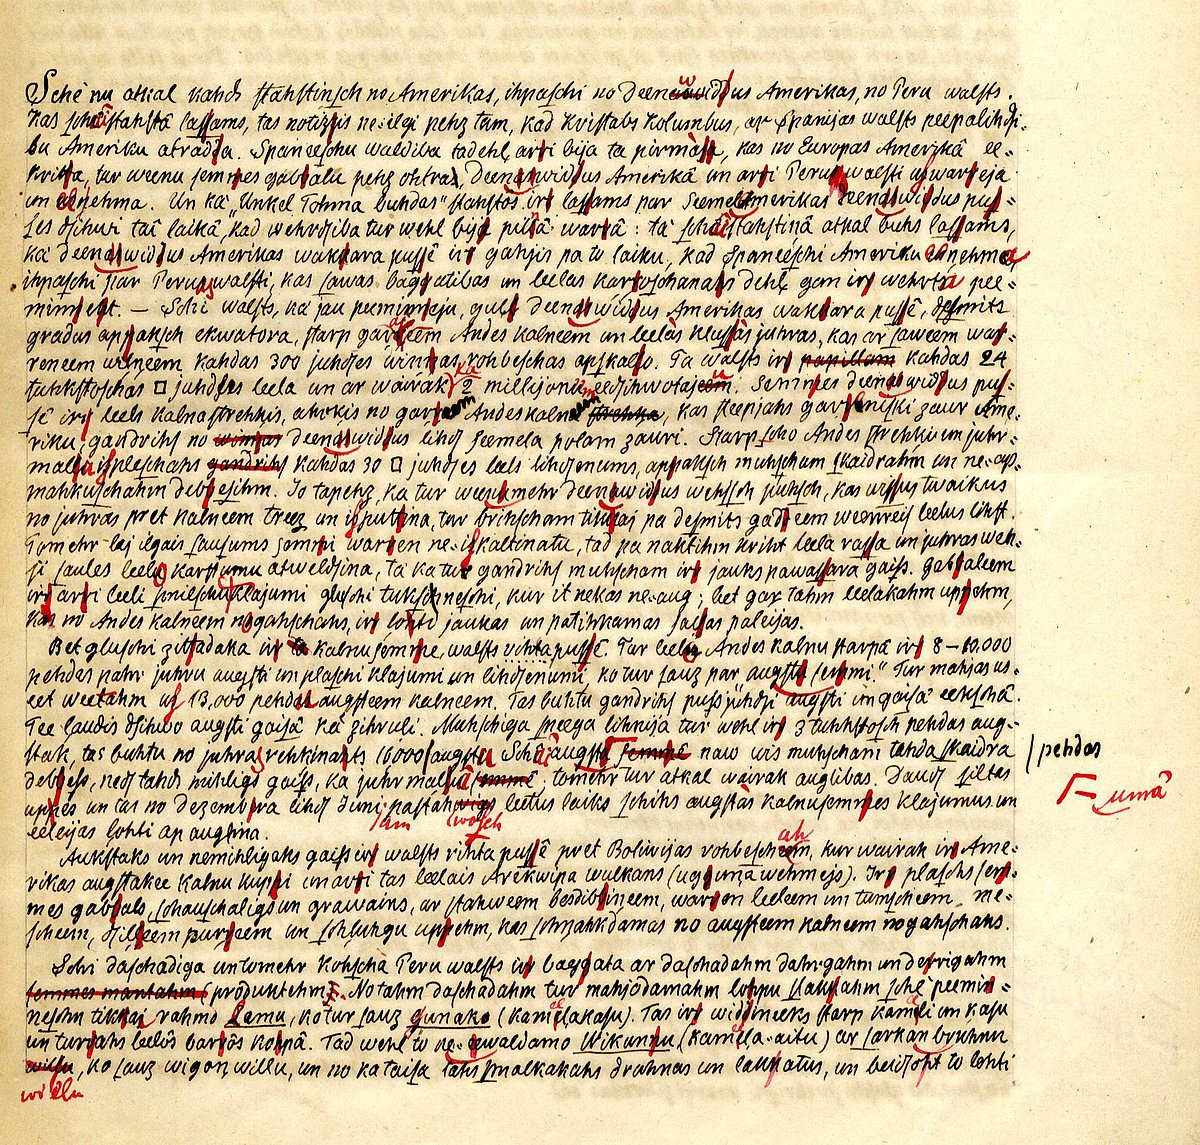 Schè nu atkal kahds stahstinsch no Amerikas, ihpaschi no deenawiddus Amerikas, no Peru walsts.
Kas schâ stahstâ lassams, tas notizzis ne-ilgi pehz tam, kad Kristabs Kolumbus, ar Spanijas walsts peepalihdsi-
bu Ameriku atradda. Spaneeschu waldiba tadehl arri bija ta pirmâja, kas no Europas Amerikâ ee-
kritta, tur weenu semmes gabbalu pehz ohtra, deenaswiddus Amerikâ un arri Peruwalsti uswarreja
un eenehma. Un kà "Unkel Tohma buhdas" stahstos irr lassams par Seemel Amerikas deenaswiddus pus-
ses dsihwi tai laikâ, kad wehrdsiba tur wehl bija pilnâ warrâ: tà schai stahstinâ atkal buhs lassams,
kà deenaswiddus Amerikas wakkara pussê irr gahjis pa to laiku, kad Spaneeschi Ameriku eenehma,
ihpaschi par Peruwalsti, kas sawas baggatibas un leelas karrososchanahs dehl gan irr wehrta pee-
minneht. — Schi walsts, kà jau peeminneju, gull deenaswiddus Amerikas wakkara pussê, desmits
gradus appaksch ekwatora, starp garreem Andes kalneem un leelas klussas juhras, kas ar saweem war-
reneem wilneem kahdas 300 juhdses winnas rohbeschas apskallo. Ta walsts irr kahdas 24
tuhkstoschas □ juhdses leela un ar wairâk kâ 2 millijoni eedsihwotajeem. Semmes deenaswiddus pus-
sê irr leels kalnastrehkis, atrohis no garreem Andes kalneem, kas steepjahs garreniski zaur Ame-
riku gandrihs no deenaswiddus lihds seemela polam zauri. Starp scho Andes strehki un juhr-
mallu ispleschahs kahdas 30 □ juhdses leels lihdsenums, appaksch muhscham skaidrahm un ne-ap-
mahkuschahm debbesihm. Jo tapehz, ka tur weenumehr deenaswiddus wehsch puhsch, kas wissus twaikus
no juhras pret kalneem treez un isputtina, tur brihscham tikkai pa desmits gaddeem weenreis leelus lihst.
Tomehr lai ilgais sausums semmi warren ne-iskaltinatu, tad pa naktihm kriht leela rassa un juhras weh-
ji saules leelu karstumu atweldsina, tà ka tur gandrihs muhscham irr jauks pawassara gaiss. Gabbaleem
irr arri leeli smilschu klajumi gluschi tukschneschi, kur it nekas ne-aug; bet gar tahm leelakahm uppehm,
kas no Andes kalneem nogahschahs, irr lohti jaukas un patihkamas sallas paleijas.
Bet gluschi zittadaka irr kalnu semme, walsts widdus pussê. Tur leelu Andes kalnu starpâ irr 8–10.000
pehdas pahr juhru augsti un plaschi klajumi un lihdsenumi, ko tur sauz par augstu semmi." Tur mahjas us-
eet weetahm us 13,000 pehdu augsteem kalneem. Tas buhtu gandrihs pussjuhdsi augsti im gaisâ eekschâ.
Tee laudis dsihwo augsti gaisâ kà zihruli. Muhschiga sneega lihnija tur wehl irr 3 tuhkstosch pehdas aug-
stak, tas buhtu no juhras rehkinahts 16000 pehdas augstu. Schê augstumâ naw wis muhscham tahda skaidra
debbess, nedf tahds mihligs gaiss, kà juhrmallâ, tomehr tur atkal wairak auglibas. Daudz siltas
uppes un tas no Dezembra lihds Juni pastahwigs leetus laiks schihs augstas kalnusemmes klajumus un
eeleijas lohti apaugļina.
Aukstaks un nemihligaks gaiss irr walsts rihta pussê pret Boliwijas rohbeschahm, kur wairak irr Ame-
rikas augstakee kalnu kuppi un arri tas leelais Arekwipa wulkans (ugguna wehmejs). Irr plaschs sem-
mes gabbals, schauschaligs un grawains, ar stahweem besdibbineem, warren leeleem un tumscheem me-
scheem, dsilleem purreem un schluhgu uppehm, kas schnahkdamas no augsteem kalneem nogahschahs.
Schi daschadiga un tomehr kohscha Peru walsts irr baggata ar daschadahm dahrgahm un derrigahm
produktehm. No tahm daschadahm tur mahjodamahm lohpu slakkahm schè peemin-
nesim tikkai rahmo Lamu, ko tur sauz Gunako (kameela kasu). Tas irr widdineeks starp kameeli un kasu
un turrahs leelôs barrôs kohpâ. Tad wehl to ne-eewaldamo Wikunnu (kameela-aitu) ar sarkan bruhnu
willu, ko sauz wigon willu, un no ka taisa tahs smalkakahs drahnas un lakkatus, un beidsoht to lohti